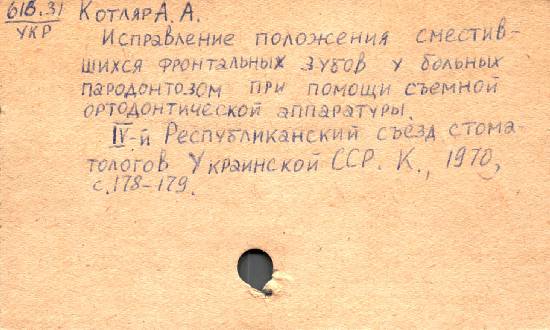 616.31 Котляр А. А.
УКР
Исправление положения сместив-
шихся фронтальных зубов у больных
пародонтозом при помощи съемной
ортодонтической аппаратуры.
IV-й Республиканский съезд стома-
тологов Украинской ССР. К., 1970,
с.178-179.